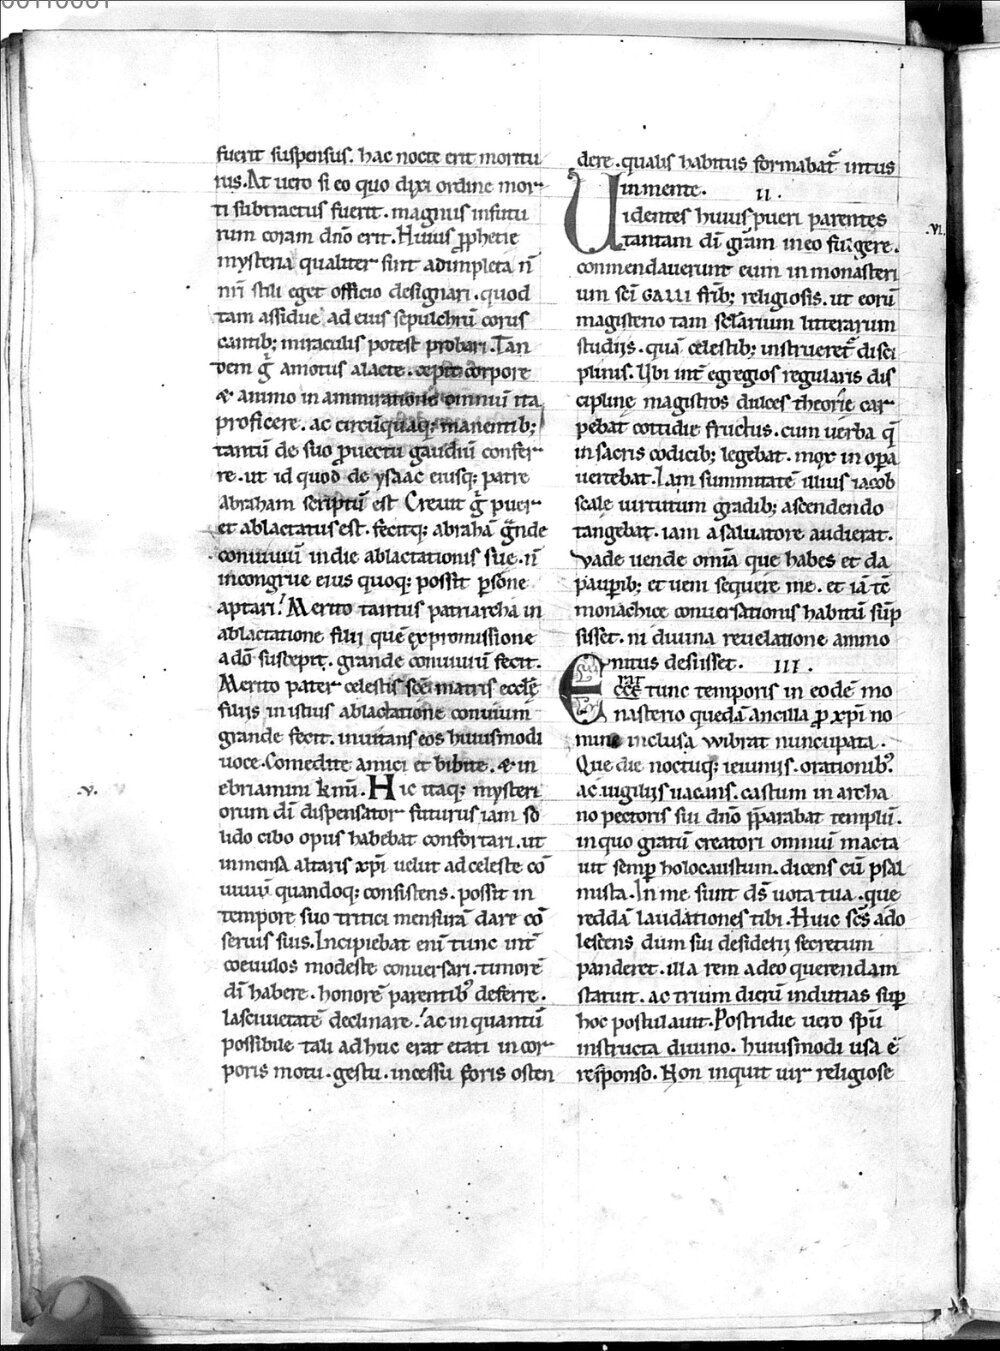 00110001
fuerit suspensus. hac nocte erit moritu
rus. At uero si eo quo dixi ordine mor
ti subtractus fuerit. magnus infitu
rum coram dño erit. Huius ꝓphetie
mysteria qualiter sint adimpleta ñ
nr̃i stili eget officio designari. quod
tam assidue ad eius sepulchrũ corus
cantib; miraculis potest probari. Tan
dem g̃ amotus a lacte. cepit corpore
& animo in ammiratione omniũ ita
proficere. ac circũquaq; manentib;
tantũ de suo ꝓuectu gaudiũ confer
re. ut id quod de ysaac eiusq; patre
abraham scriptũ est Creuit g̃ puer
et ablactatus est. fecitq; abrahã g̃nde
conuiuiũ in die ablactationis sue. ñ
incongrue eius quoq; possit ꝑsone
aptari. Merito tantus patriarcha in
ablactatione filii quẽ ex promissione
a dõ suscepit. grande conuiuiũ fecit.
Merito pater celestis sc̃e matris eccl̃ę
filiis in istius ablactatione conuiuium
grande fecit. inuitans eos huiusmodi
uoce. Comedite amici et bibite. & in
ebriamini k̃mi. Hic itaq; mysteri
.v.
orum dĩ dispensator futurus iam so
lido cibo opus habebat confortari. ut
in mensa altaris xp̃i uelut ad celeste cõ
uiuiũ quandoq; consistens. possit in
tempore suo tritici mensurã dare cõ
seruis suis. Incipiebat enĩ tunc int̃
coeuulos modeste conuersari. timorẽ
dĩ habere. honorẽ parentib; deferre.
lasciuietatẽ declinare. ac in quantũ
possibile tali adhuc erat etati in cor
poris motu. gestu. incessu foris osten
dere. qualis habitus formabat̃ intus
in mente. II.
Uidentes huius pueri parentes
.vi.
tantam dĩ grãm in eo fulgere.
conmendauerunt eum in monasteri
um sc̃i GALLI fr̃ib; religiosis. ut eorũ
magisterio tam sc̃larium litterarum
studiis. quã celestib; instrueret̃ disci
plinis. Ubi int̃ egregios regularis dis
cipline magistros dulces theorie car
pebat cottidie fructus. cum uerba q̃
in sacris codicib; legebat. mox in opa
uertebat. Iam summitatẽ illius iacob
scale uirtutum gradib; ascendendo
tangebat. iam a saluatore audierat.
Vade uende omĩa que habes et da
pauꝑib; et ueni sequere me. et iã tẽ
monachice conuersationis habitũ sũp
sisset. ni diuina reuelatione ammo
nitus desiisset. III.
Erat tunc temporis in eodẽ mo
nasterio quedã ancilla ꝓ xp̃i no
mine inclusa wibrat nuncupata.
Que die noctuq; ieiuniis. orationib;
ac uigiliis uacans. castum in archa
no pectoris sui dño p̃parabat templũ.
in quo gratũ creatori omniũ macta
uit semꝑ holocaustum. dicens cũ psal
mista. In me sunt ds̃ uota tua. que
reddã laudationes tibi. Huic sc̃s ado
lescens dum sui desiderii secretum
panderet. illa rem adeo querendam
statuit. ac trium dierũ indutias suꝑ
hoc postulauit. Postridie uero sp̃u
instructa diuino. huiusmodi usa ẽ
responso. Non inquit uir religiose